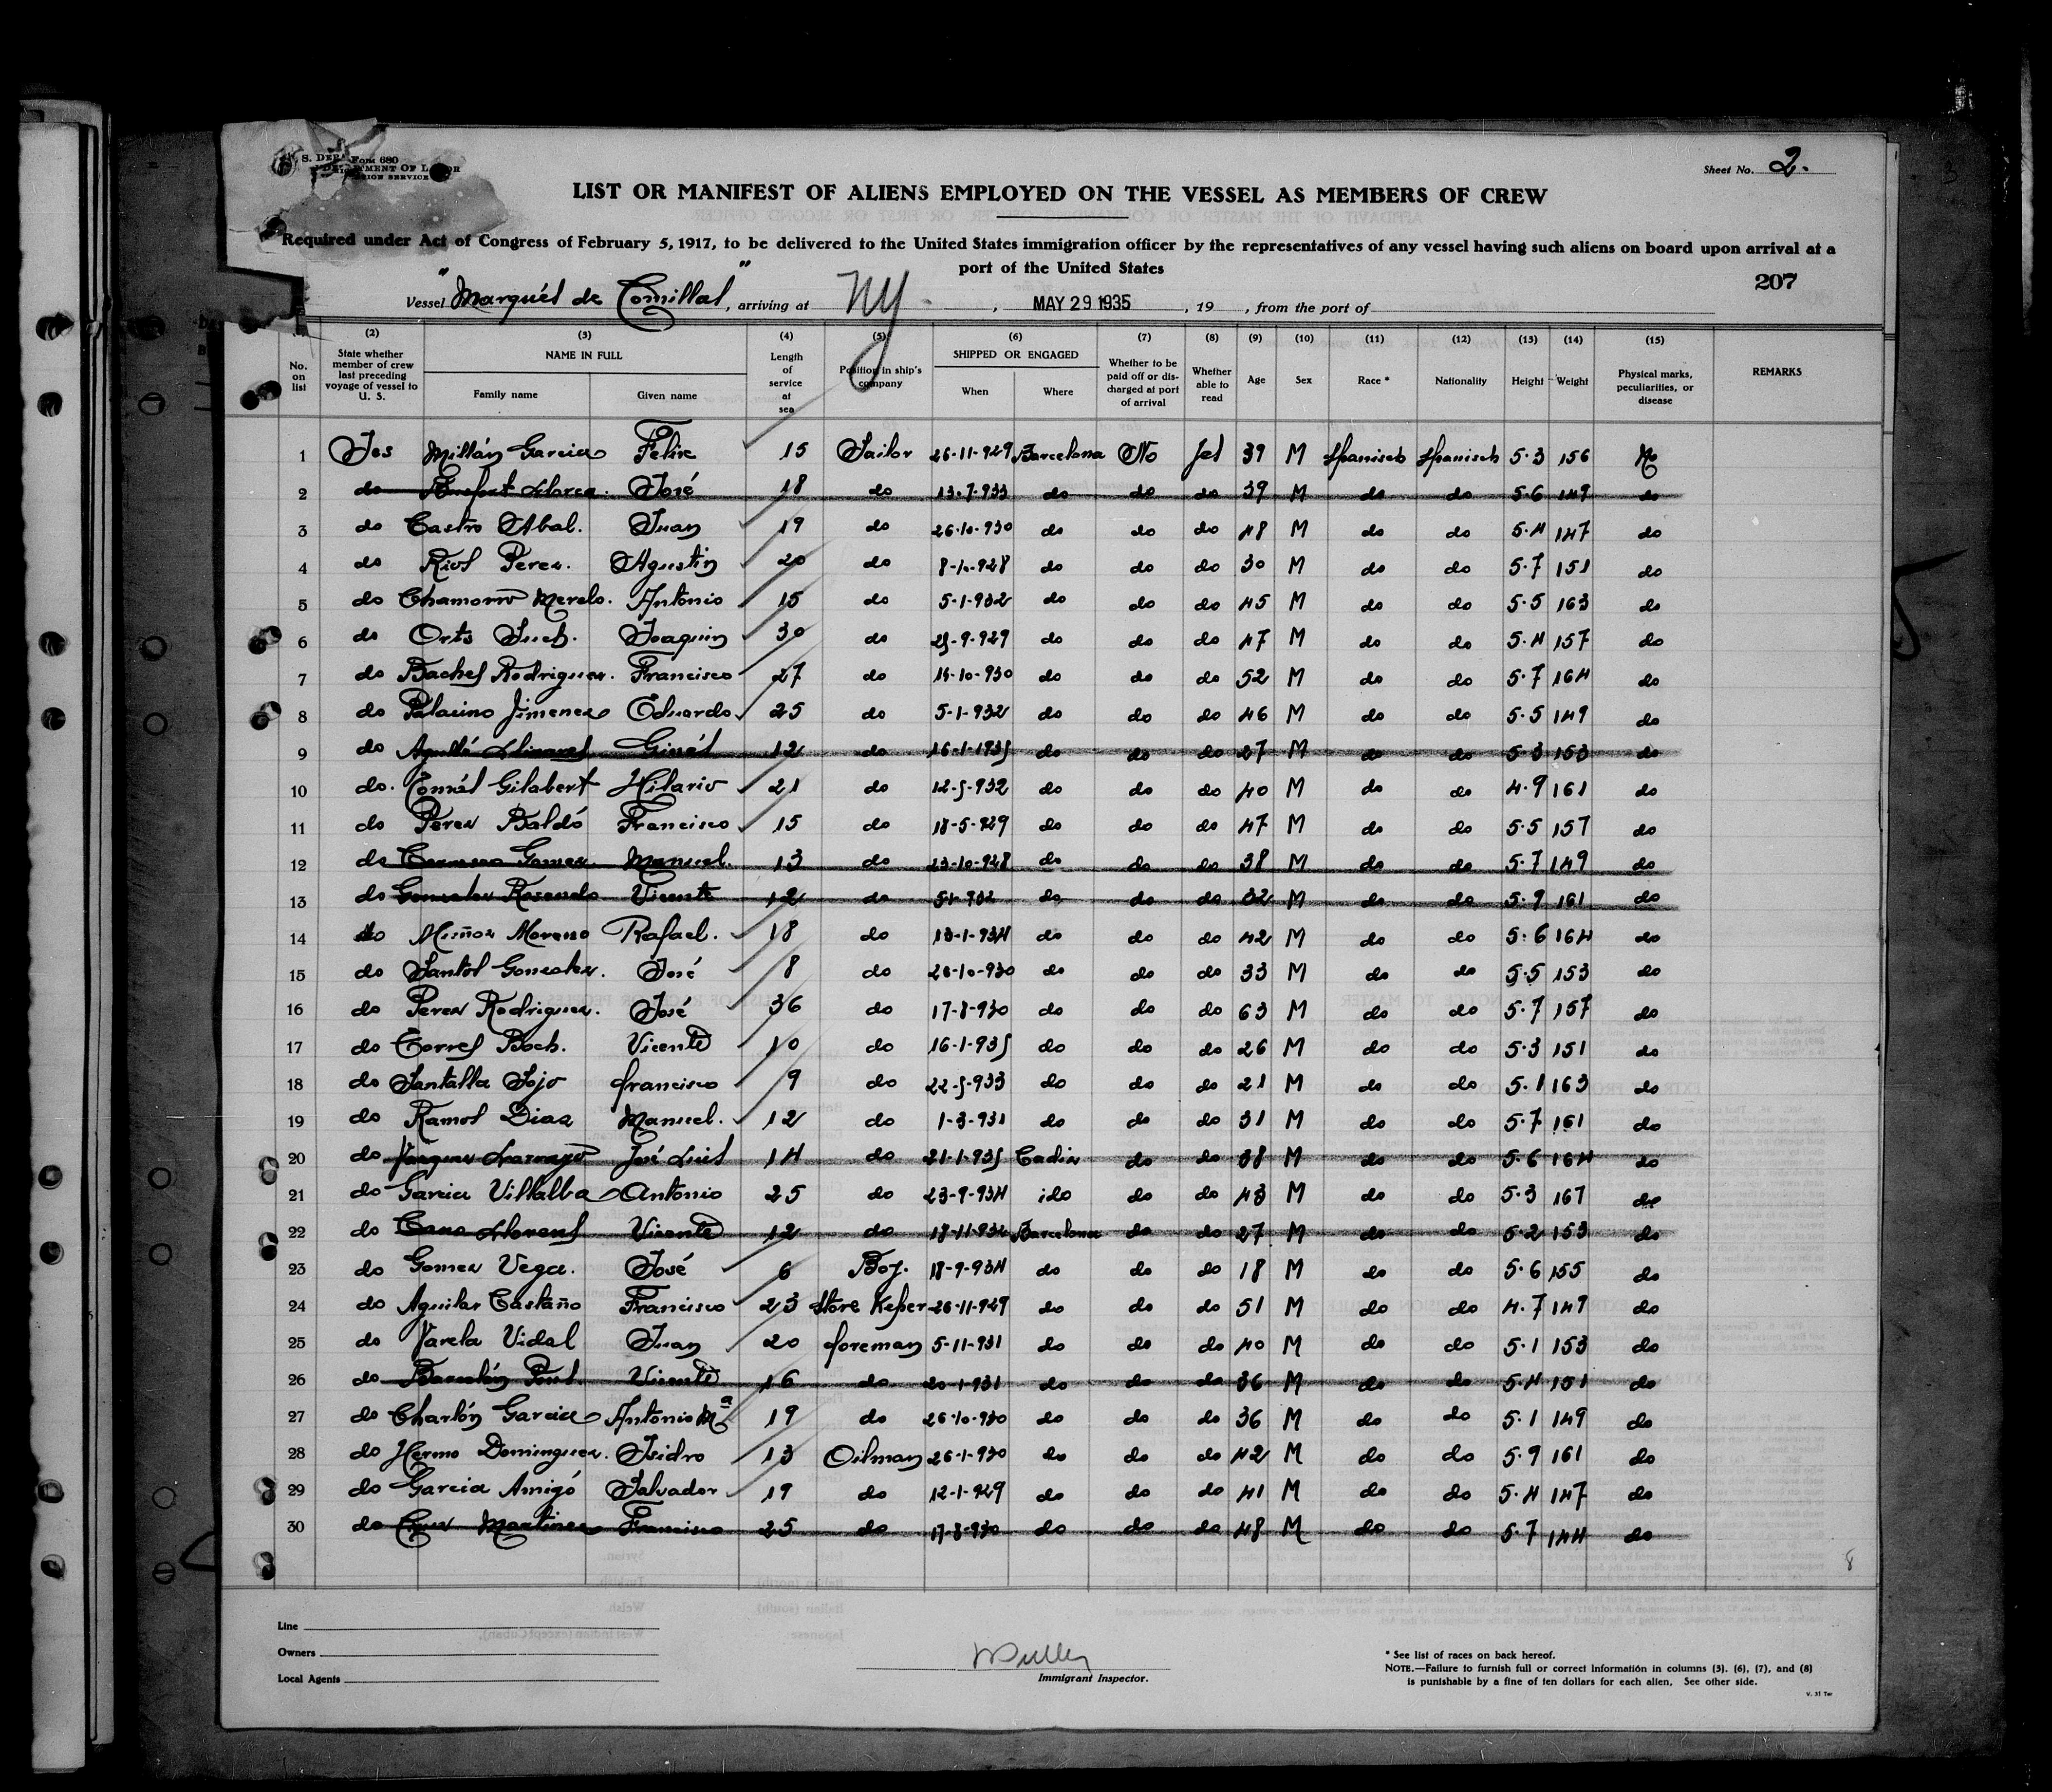 Form 680
LIST OR MANIFEST OF ALIENS EMPLOYED ON THE VESSEL AS MEMBERS OF CREW
Sheet No. 2.
Required under Act of Congress of February 5, 1917, to be delivered to the United States immigration officer by the representatives of any vessel having such aliens on board upon arrival at a
port of the United States
207
Vessel "Marqués de Comillas", arriving at NY. , MAY 29 1935 , 19 , from the port of
(2) (3) (4) (5) (6) (7) (8) (9) (10) (11) (12) (13) (14) (15)
No. on list State whether member of crew last preceding voyage of vessel to U. S. NAME IN FULL Family name Given name Length of service at sea Position in ship's company SHIPPED OR ENGAGED When Where Whether to be paid off or discharged at port of arrival Whether able to read Age Sex Race * Nationality Height Weight Physical marks, peculiarities, or disease REMARKS
1 Yes Millán Garcia Felix 15 Sailor 26-11-929 Barcelona No Yes 39 M Spanisch Spanisch 5·3 156 No
2 do José 18 do 13-7-933 do do do 39 M do do 5·6 149 do
3 do Castro Abal. Juan 19 do 26-10-930 do do do 48 M do do 5·4 147 do
4 do Rios Perez. Agustin 20 do 8-10-928 do do do 30 M do do 5·7 151 do
5 do Chamorro Merelo. Antonio 15 do 5-1-932 do do do 45 M do do 5·5 163 do
6 do Orts Such. Joaquin 30 do 25-9-929 do do do 47 M do do 5·4 157 do
7 do Baches Rodriguez. Francisco 27 do 14-10-930 do do do 52 M do do 5·7 164 do
8 do Palacino Jimenez Eduardo 25 do 5-1-932 do do do 46 M do do 5·5 149 do
9 do Agulló Llinares Ginés 12 do 16-1-1935 do do do 27 M do do 5·3 153 do
10 do. Tomás Gilabert Hilario 21 do 12-5-932 do do do 40 M do do 4·9 161 do
11 do Perez Baldó Francisco 15 do 18-5-929 do do do 47 M do do 5·5 157 do
12 do Gomez. Manuel. 13 do 23-10-928 do do do 38 M do do 5·7 149 do
13 do Gonzalez Rosendo Vicente 12 do 5-1-932 do do do 32 M do do 5·9 161 do
14 do Muñoz Moreno Rafael. 18 do 18-1-934 do do do 42 M do do 5·6 164 do
15 do Santos Gonzalez. José 8 do 26-10-930 do do do 33 M do do 5·5 153 do
16 do Perez Rodriguez. José 36 do 17-8-930 do do do 63 M do do 5·7 157 do
17 do Torres Boch. Vicente 10 do 16-1-935 do do do 26 M do do 5·3 151 do
18 do Santalla Sojo francisco 9 do 22-5-933 do do do 21 M do do 5·1 163 do
19 do Ramos Diaz Manuel. 12 do 1-3-931 do do do 31 M do do 5·7 161 do
20 do José Luis 14 do 21-1-935 Cadiz do do 38 M do do 5·6 164 do
21 do Garcia Villalba Antonio 25 do 23-9-934 ido do do 43 M do do 5·3 167 do
22 do Cano Llorens Vicente 12 do 18-11-932 Barcelona do do 27 M do do 5·2 153 do
23 do Gomez Vega. José 6 Boy. 18-9-934 do do do 18 M do do 5·6 155 do
24 do Aguilar Castaño Francisco 23 Store Keper 26-11-929 do do do 51 M do do 4·7 149 do
25 do Varela Vidal Juan 20 foreman 5-11-931 do do do 40 M do do 5·1 153 do
26 do Vicente 16 do 20-1-931 do do do 36 M do do 5·4 151 do
27 do Charlón Garcia Antonio Mª 19 do 26-10-930 do do do 36 M do do 5·1 149 do
28 do Hermo Dominguez. Isidro 13 Oilman 26-1-930 do do do 42 M do do 5·9 161 do
29 do Garcia Amigó Salvador 19 do 12-1-929 do do do 41 M do do 5·4 147 do
30 do Cruz Martinez Francisco 25 do 17-8-930 do do do 48 M do do 5·7 144 do
8
Line
Owners
Local Agents
Immigrant Inspector.
* See list of races on back hereof.
NOTE.—Failure to furnish full or correct information in columns (3), (6), (7), and (8)
is punishable by a fine of ten dollars for each alien. See other side.